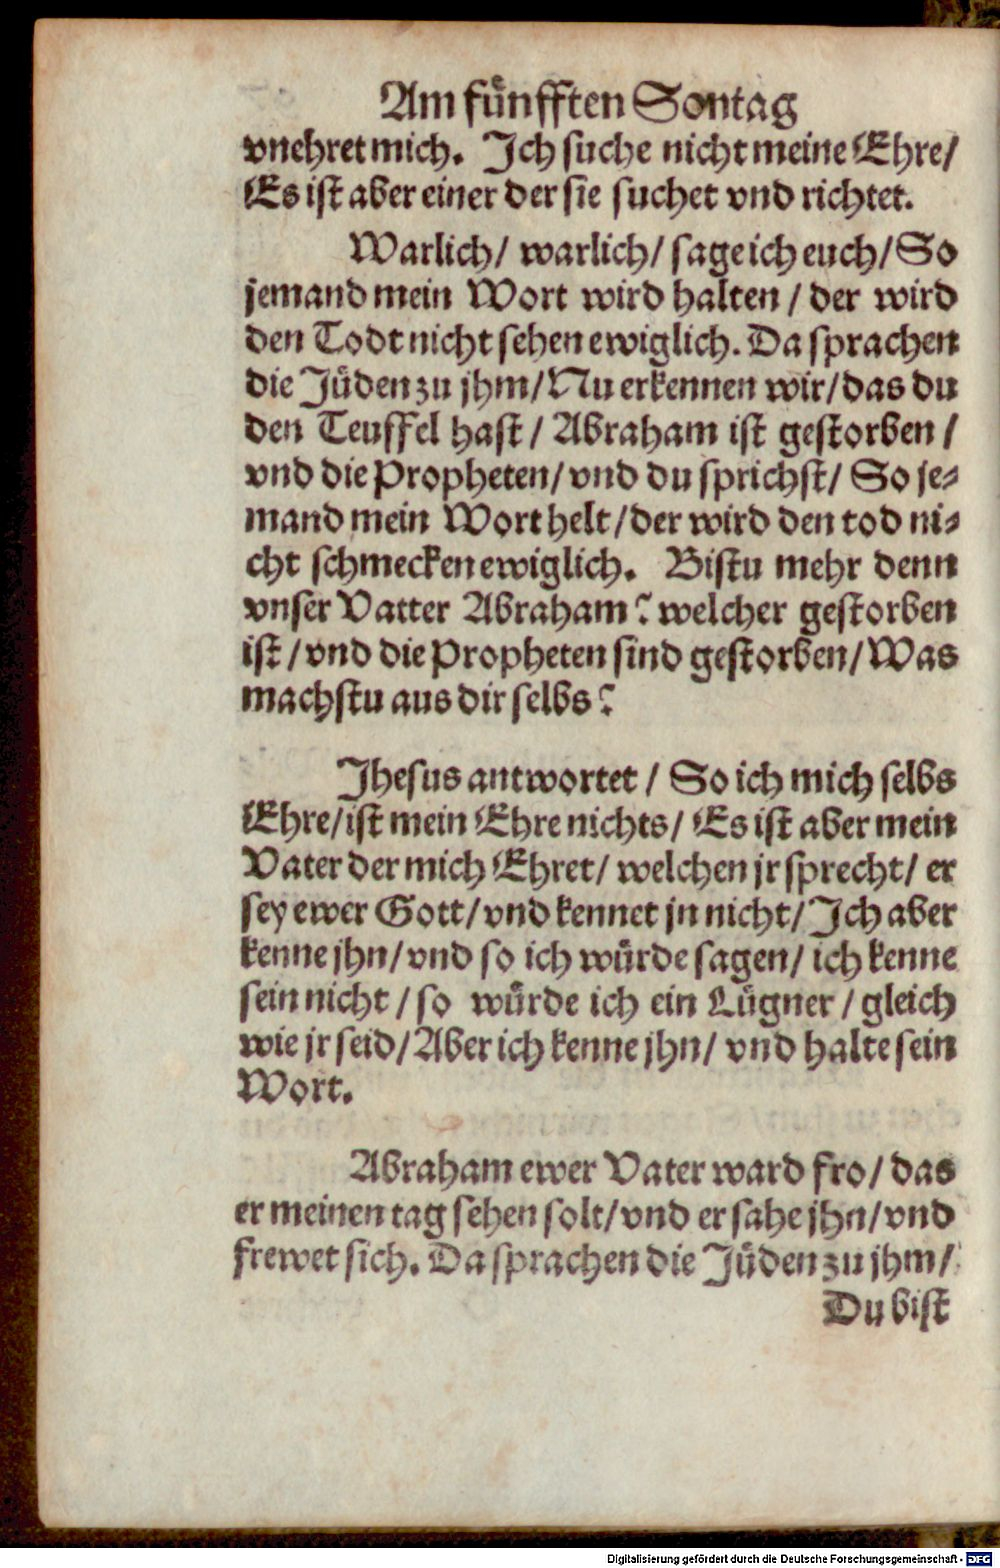 Am fünfften Sontag
vnehret mich. Ich suche nicht meine Ehre/
Es ist aber einer der sie suchet vnd richtet.
Warlich/ warlich/ sage ich euch/ So
jemand mein Wort wird halten / der wird
den Todt nicht sehen ewiglich. Da sprachen
die Jüden zu jhm/ Nu erkennen wir/ das du
den Teuffel hast / Abraham ist gestorben /
vnd die Propheten/ vnd du sprichst/ So je-
mand mein Wort helt / der wird den tod ni-
cht schmecken ewiglich. Bistu mehr denn
vnser Vatter Abraham? welcher gestorben
ist / vnd die Propheten sind gestorben/ Was
machstu aus dir selbs?
Jhesus antwortet / So ich mich selbs
Ehre/ ist mein Ehre nichts/ Es ist aber mein
Vater der mich Ehret/ welchen jr sprecht/ er
sey ewer Gott/ vnd kennet jn nicht/ Ich aber
kenne jhn/ vnd so ich würde sagen/ ich kenne
sein nicht / so würde ich ein Lügner / gleich
wie jr seid/ Aber ich kenne jhn/ vnd halte sein
Wort.
Abraham ewer Vater ward fro/ das
er meinen tag sehen solt/ vnd er sahe jhn/ vnd
frewet sich. Da sprachen die Jüden zu jhm/
Du bist
Digitalisierung gefördert durch die Deutsche Forschungsgemeinschaft - DFG